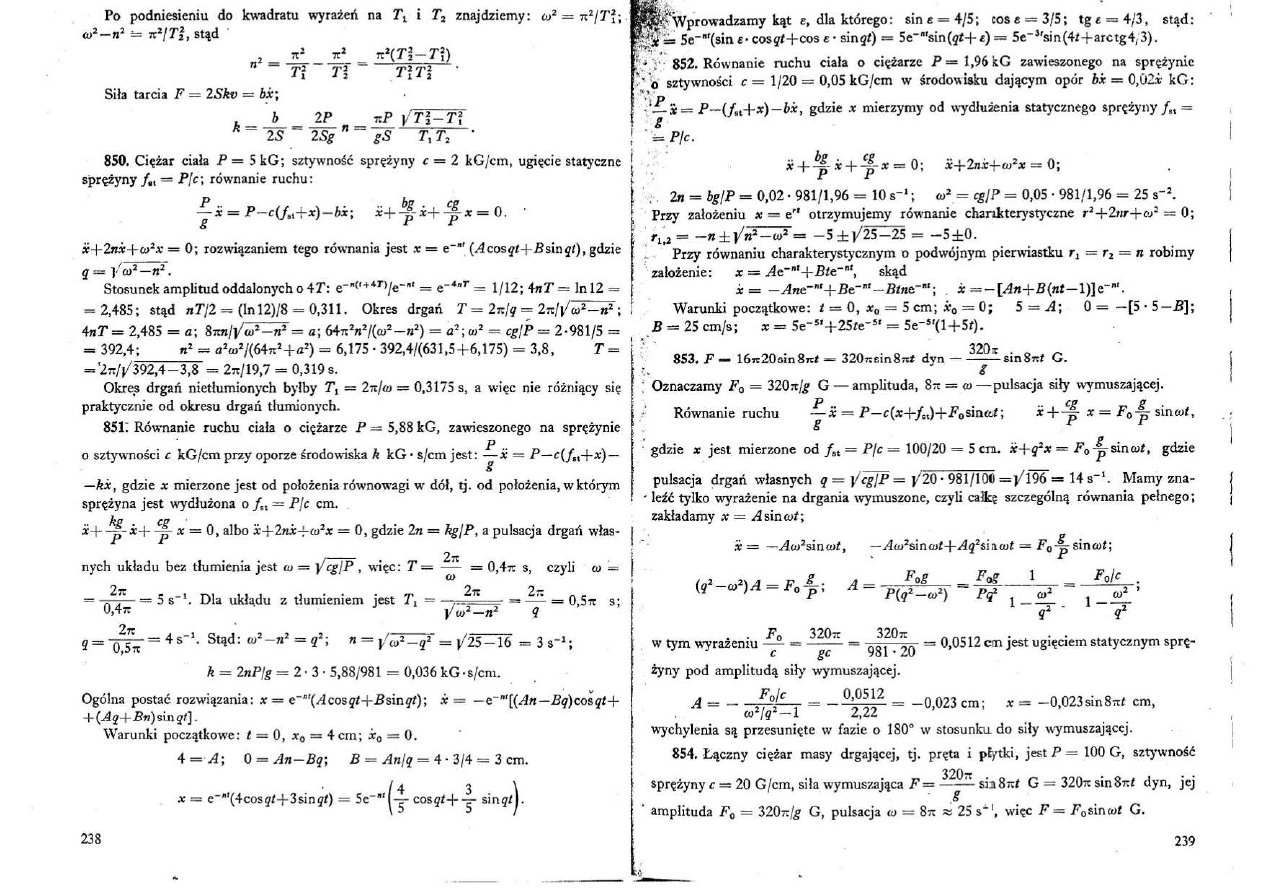 Po podniesieniu do kwadratu wyrażeń na T₁ i T₂ znajdziemy: ω² = π²/T₁²;
ω²—n² = π²/T₂², stąd
n² = π²/T₁² — π²/T₂² = π²(T₂²—T₁²)/T₁²T₂² .
Siła tarcia F = 2Skv = bẋ;
k = b/2S = 2P/2Sg n = πP/gS √T₂²—T₁²/T₁T₂ .
850. Ciężar ciała P = 5 kG; sztywność sprężyny c = 2 kG/cm, ugięcie statyczne
sprężyny fst = P/c; równanie ruchu:
P/g ẍ = P—c(fst+x)—bẋ; ẍ+ bg/P ẋ+ cg/P x = 0.
ẍ+2nẋ+ω²x = 0; rozwiązaniem tego równania jest x = e⁻ⁿᵗ (A cos qt+B sin qt), gdzie
q = √ω²—n².
Stosunek amplitud oddalonych o 4T: e^(−n(t+4T))/e^(−nt) = e^(−4nT) = 1/12; 4nT = ln 12 =
= 2,485; stąd nT/2 = (ln 12)/8 = 0,311. Okres drgań T = 2π/q = 2π/√ω²—n²;
4nT = 2,485 = a; 8πn/√ω²—n² = a; 64π²n²/(ω²—n²) = a²; ω² = cg/P = 2·981/5 =
= 392,4; n² = a²ω²/(64π²+a²) = 6,175 · 392,4/(631,5+6,175) = 3,8, T =
= 2π/√392,4—3,8 = 2π/19,7 = 0,319 s.
Okres drgań nietłumionych byłby T₁ = 2π/ω = 0,3175 s, a więc nie różniący się
praktycznie od okresu drgań tłumionych.
851. Równanie ruchu ciała o ciężarze P = 5,88 kG, zawieszonego na sprężynie
o sztywności c kG/cm przy oporze środowiska k kG · s/cm jest: P/g ẍ = P—c(fst+x)—
—kẋ, gdzie x mierzone jest od położenia równowagi w dół, tj. od położenia, w którym
sprężyna jest wydłużona o fst = P/c cm.
ẍ+ kg/P ẋ+ cg/P x = 0, albo ẍ+2nẋ+ω²x = 0, gdzie 2n = kg/P, a pulsacja drgań włas-
nych układu bez tłumienia jest ω = √cg/P , więc: T = 2π/ω = 0,4π s, czyli ω =
= 2π/0,4π = 5 s⁻¹. Dla układu z tłumieniem jest T₁ = 2π/√ω²—n² = 2π/q = 0,5π s;
q = 2π/0,5π = 4 s⁻¹. Stąd: ω²—n² = q²; n = √ω²—q² = √25—16 = 3 s⁻¹;
k = 2nP/g = 2 · 3 · 5,88/981 = 0,036 kG·s/cm.
Ogólna postać rozwiązania: x = e⁻ⁿᵗ(A cos qt+B sin qt); ẋ = —e⁻ⁿᵗ[(An—Bq)cos qt+
+(Aq+Bn)sin qt].
Warunki początkowe: t = 0, x₀ = 4 cm; ẋ₀ = 0.
4 = A; 0 = An—Bq; B = An/q = 4 · 3/4 = 3 cm.
x = e⁻ⁿᵗ(4cos qt+3sin qt) = 5e⁻ⁿᵗ(4/5 cos qt+ 3/5 sin qt).
238
Wprowadzamy kąt ε, dla którego: sin ε = 4/5; cos ε = 3/5; tg ε = 4/3, stąd:
x = 5e⁻ⁿᵗ(sin ε · cos qt+cos ε · sin qt) = 5e⁻ⁿᵗsin(qt+ε) = 5e⁻³ᵗsin(4t+arctg4/3).
852. Równanie ruchu ciała o ciężarze P = 1,96 kG zawieszonego na sprężynie
o sztywności c = 1/20 = 0,05 kG/cm w środowisku dającym opór bẋ = 0,02ẋ kG:
P/g ẍ = P—(fst+x)—bẋ, gdzie x mierzymy od wydłużenia statycznego sprężyny fst =
= P/c.
ẍ + bg/P ẋ + cg/P x = 0; ẍ+2nẋ+ω²x = 0;
2n = bg/P = 0,02 · 981/1,96 = 10 s⁻¹; ω² = cg/P = 0,05 · 981/1,96 = 25 s⁻².
Przy założeniu x = eʳᵗ otrzymujemy równanie charakterystyczne r²+2nr+ω² = 0;
r₁,₂ = —n ± √n²—ω² = —5 ± √25—25 = —5±0.
Przy równaniu charakterystycznym o podwójnym pierwiastku r₁ = r₂ = n robimy
założenie: x = Ae⁻ⁿᵗ+Bte⁻ⁿᵗ, skąd
ẋ = —Ane⁻ⁿᵗ+Be⁻ⁿᵗ—Btne⁻ⁿᵗ; ẋ = —[An+B(nt—1)]e⁻ⁿᵗ.
Warunki początkowe: t = 0, x₀ = 5 cm; ẋ₀ = 0; 5 = A; 0 = —[5 · 5—B];
B = 25 cm/s; x = 5e⁻⁵ᵗ+25te⁻⁵ᵗ = 5e⁻⁵ᵗ(1+5t).
853. F = 16π20 sin 8πt = 320π sin 8πt dyn = 320π/g sin 8πt G.
Oznaczamy F₀ = 320π/g G — amplituda, 8π = ω — pulsacja siły wymuszającej.
Równanie ruchu P/g ẍ = P—c(x+fst)+F₀ sin ωt; ẍ+ cg/P x = F₀ g/P sin ωt,
gdzie x jest mierzone od fst = P/c = 100/20 = 5 cm. ẍ+q²x = F₀ g/P sin ωt, gdzie
pulsacja drgań własnych q = √cg/P = √20 · 981/100 = √196 = 14 s⁻¹. Mamy zna-
leźć tylko wyrażenie na drgania wymuszone, czyli całkę szczególną równania pełnego;
zakładamy x = A sin ωt;
ẍ = —Aω²sin ωt, —Aω²sin ωt+Aq²sin ωt = F₀ g/P sin ωt;
(q²—ω²)A = F₀ g/P; A = F₀g/P(q²—ω²) = F₀g/Pq² 1/(1— ω²/q²) = F₀/c/(1— ω²/q²);
w tym wyrażeniu F₀/c = 320π/gc = 320π/981 · 20 = 0,0512 cm jest ugięciem statycznym sprę-
żyny pod amplitudą siły wymuszającej.
A = — F₀/c/(ω²/q²—1) = — 0,0512/2,22 = —0,023 cm; x = —0,023 sin 8πt cm,
wychylenia są przesunięte w fazie o 180° w stosunku do siły wymuszającej.
854. Łączny ciężar masy drgającej, tj. pręta i płytki, jest P = 100 G, sztywność
sprężyny c = 20 G/cm, siła wymuszająca F = 320π/g sin 8πt G = 320π sin 8πt dyn, jej
amplituda F₀ = 320π/g G, pulsacja ω = 8π ≈ 25 s⁻¹, więc F = F₀ sin ωt G.
239